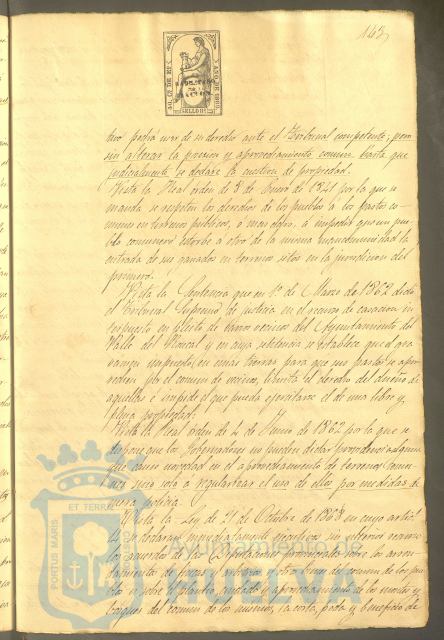 143
50 CS. DE PTA.
AÑO DE 1880
SELLO 11º
dro podrá usar de su derecho ante el Tribunal competente; pero
sin alterar la posesion y aprovechamiento comun hasta que
judicialmente se declare la cuestion de propiedad.
Vista la Real orden de 8 de Enero de 1841 por la que se
manda se respeten los derechos de los pueblos á los pastos co-
munes en terrenos públicos, ó
á impedir que un pue-
blo comunero estorbe á otro de la misma mancomunidad la
entrada de sus ganados en terrenos sitos en la jurisdiccion del
primero.
Vista la Sentencia que en 1º de Marzo de 1862 dictó
el Tribunal Supremo de justicia en el recurso de casacion in-
terpuesto en pleito de varios vecinos del Ayuntamiento del
Valle del
y en cuya sentencia se establece que el gra-
vamen impuesto en unas tierras para que sus pastos se apro-
vechen por el comun de vecinos, limita el derecho del dueño de
aquellas é impide el que pueda ejercitarse el de una libre y
plena propiedad.
Vista la Real orden de 2 de Junio de 1862 por la que se
dispone que los Gobernadores no pueden dictar providencia alguna
que cause novedad en el aprovechamiento de terrenos comu-
nes sino solo á regularizar el uso de ellos por medidas de
mera policia.
Vista la Ley de 21 de Octubre de 1868 en cuyo artícu-
lo se declaran inmediatamente ejecutivos sin ulterior recurso
los acuerdos de las Diputaciones provinciales sobre los arren-
damientos de fincas y
otros bienes del comun de los pue-
blos ó sobre el plantio, cuidado y aprovechamiento de los montes y
bosques del comun de los mismos, la corta, poda y beneficio de
PORTUS MARIS
ET TERRÆ
Ayuntamiento de
HUELVA